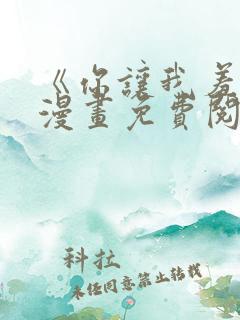 《你讓我羞
漫畫免費閱
科拉
未經同意禁止轉載